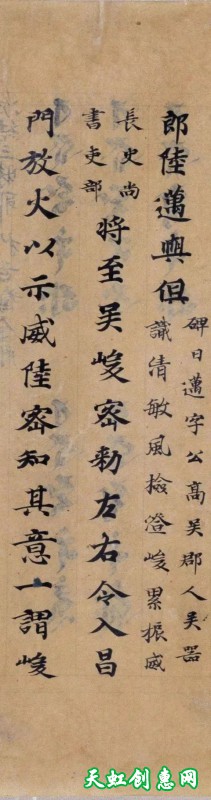 郎陸邁與俱
碑曰邁字公高吳郡人吳器
識清敏風撿澄峻累振威
長史尚
書吏部
將至吳峻密勑左右令入昌
門放火以示威陸密知其意謂峻
天虹创惠网